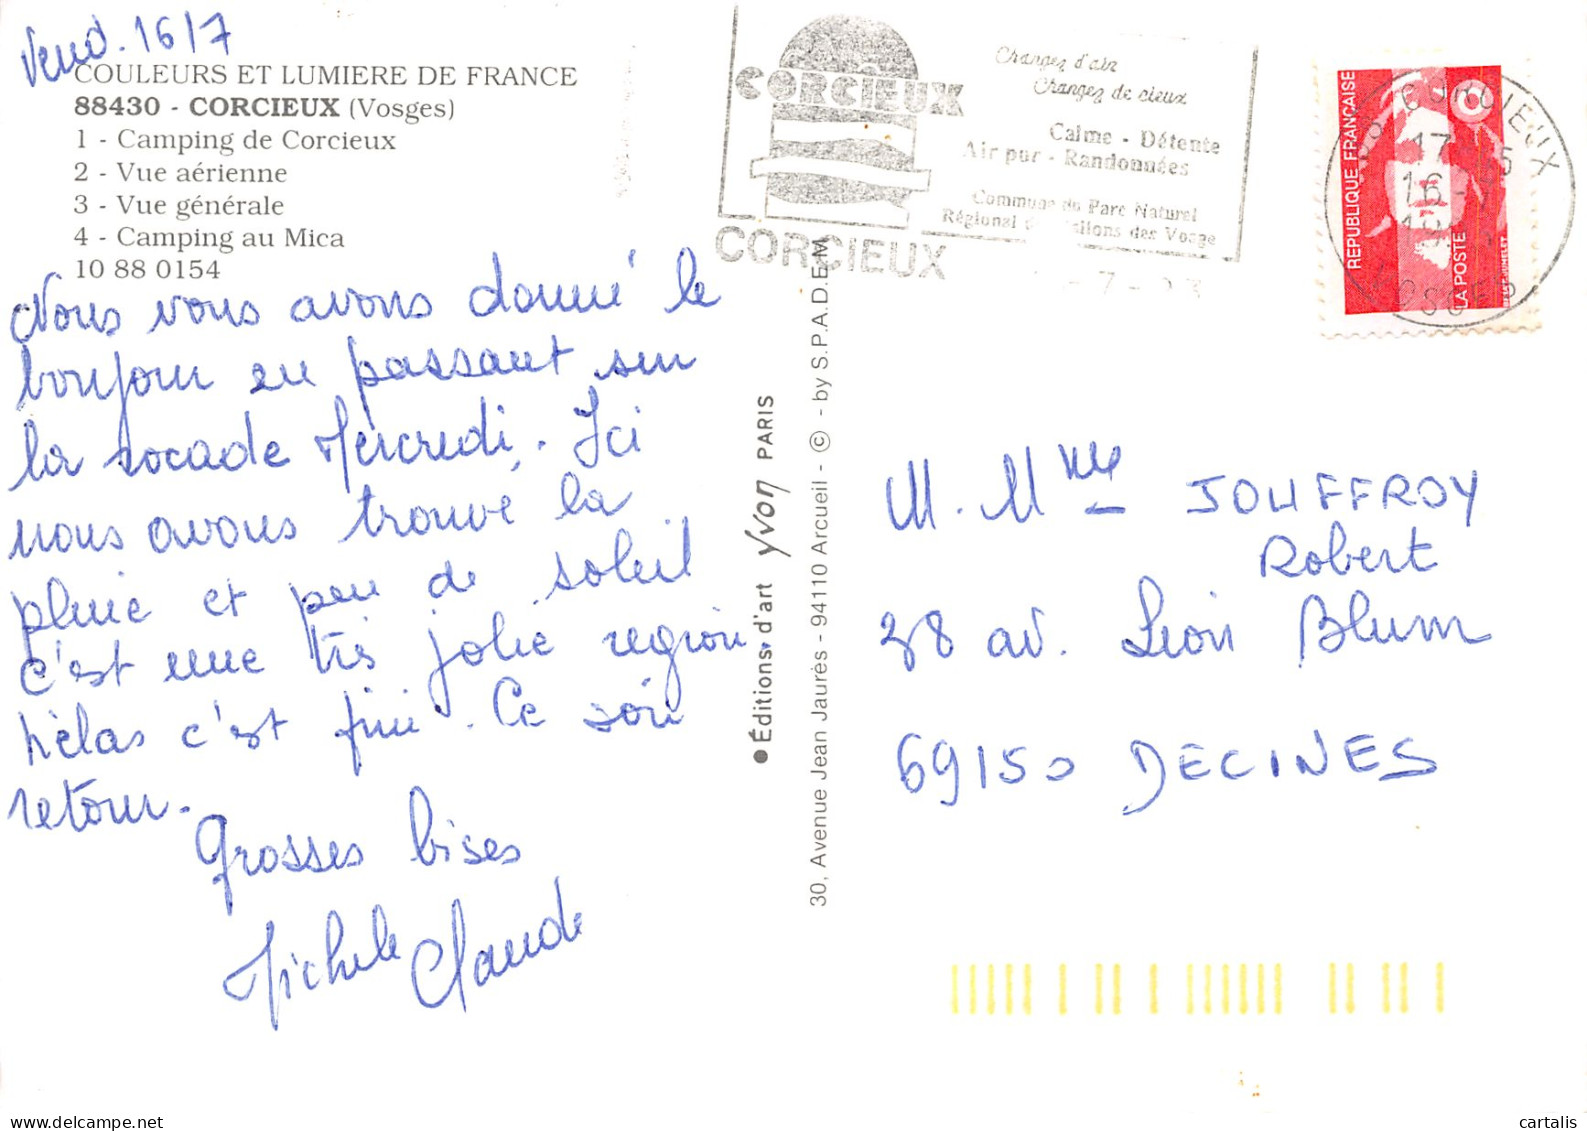 Vend. 16/7
COULEURS ET LUMIERE DE FRANCE
88430 - CORCIEUX (Vosges)
1 - Camping de Corcieux
2 - Vue aérienne
3 - Vue générale
4 - Camping au Mica
10 88 0154
Nous vous avons donné le
bonjour en passant sur
la rocade Mercredi. Ici
nous avons trouvé la
pluie et peu de soleil
c'est une très jolie région
hélas c'est fini. Ce soir
retour.
Grosses bises
Michele Claude
● Éditions d'art yvon PARIS
30, Avenue Jean Jaurès - 94110 Arcueil - © - by S.P.A.D.E.M.
CORCIEUX
Changez d'air
Changez de cieux
Calme - Détente
Air pur - Randonnées
Commune du Parc Naturel
Régional des Ballons des Vosges
CORCIEUX
RÉPUBLIQUE FRANÇAISE
LA POSTE
CORCIEUX
17
16 - 7
VOSGES
M. Mme JOUFFROY
Robert
38 av. Léon Blum
69150 DECINES
delcampe.net
cartalis